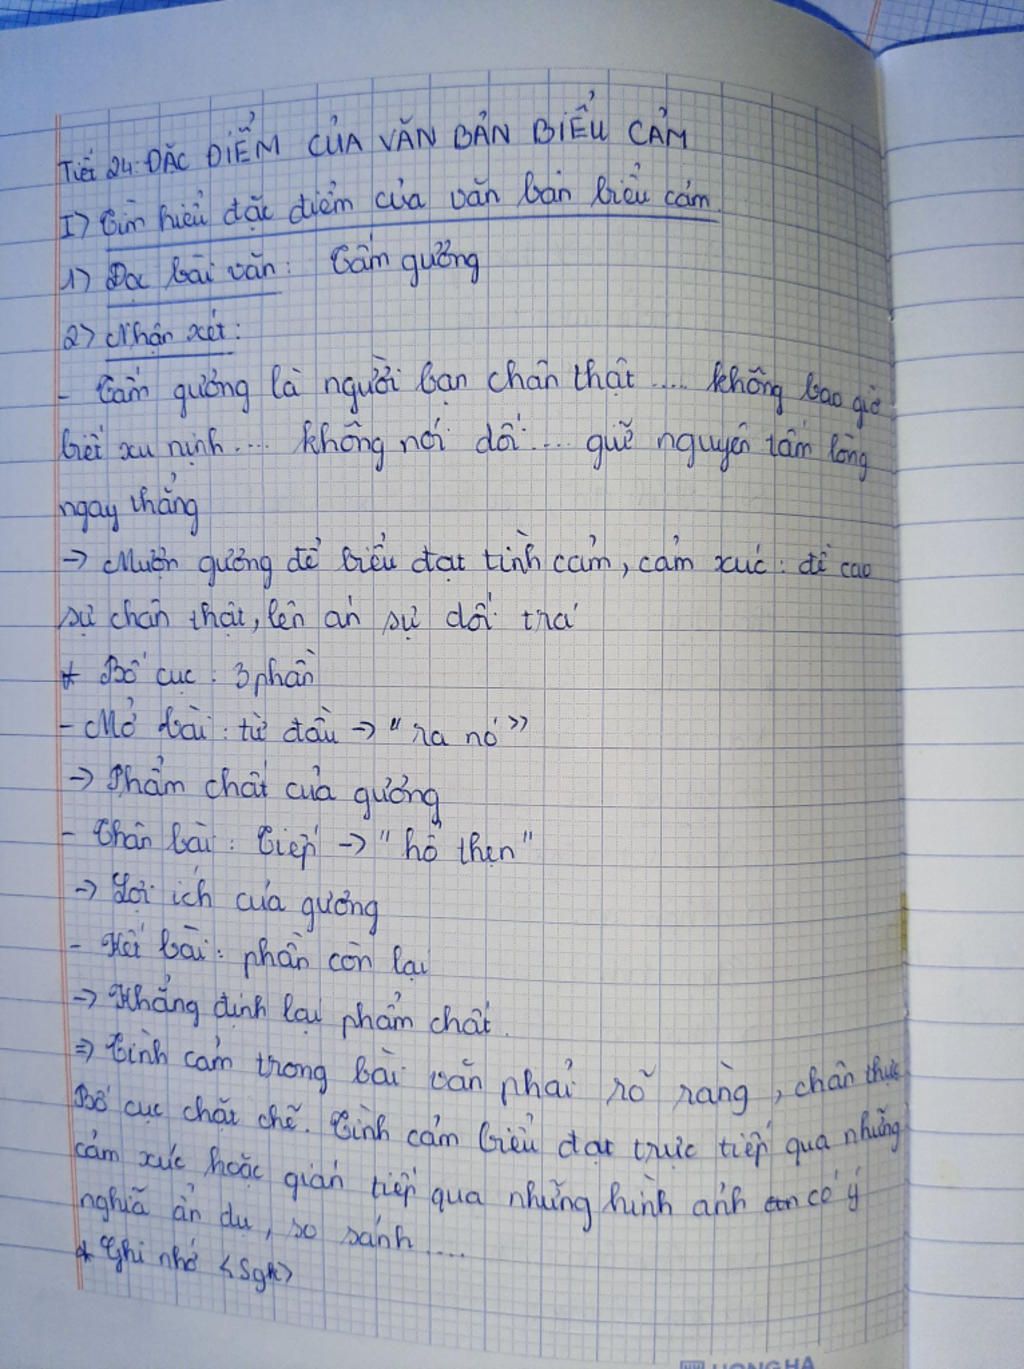 Tiết 24: ĐẶC ĐIỂM CỦA VĂN BẢN BIỂU CẢM
I) Tìm hiểu đặc điểm của văn bản biểu cảm
1) Đọc bài văn: Tấm gương
2) Nhận xét:
- Tấm gương là người bạn chân thật .... không bao giờ
biết xu nịnh .... không nói dối .... giữ nguyên tấm lòng
ngay thẳng
→ Mượn gương để biểu đạt tình cảm, cảm xúc: đề cao
sự chân thật, lên án sự dối trá
* Bố cục: 3 phần
- Mở bài: từ đầu → "ra nó"
→ Phẩm chất của gương
- Thân bài: Tiếp → "hổ thẹn"
→ Lợi ích của gương
- Kết bài: phần còn lại
→ Khẳng định lại phẩm chất.
⇒ Tình cảm trong bài văn phải rõ ràng, chân thực
Bố cục chặt chẽ. Tình cảm biểu đạt trực tiếp qua những
cảm xúc hoặc gián tiếp qua những hình ảnh có ý
nghĩa ẩn dụ, so sánh ....
* Ghi nhớ <Sgk>
HONG HA